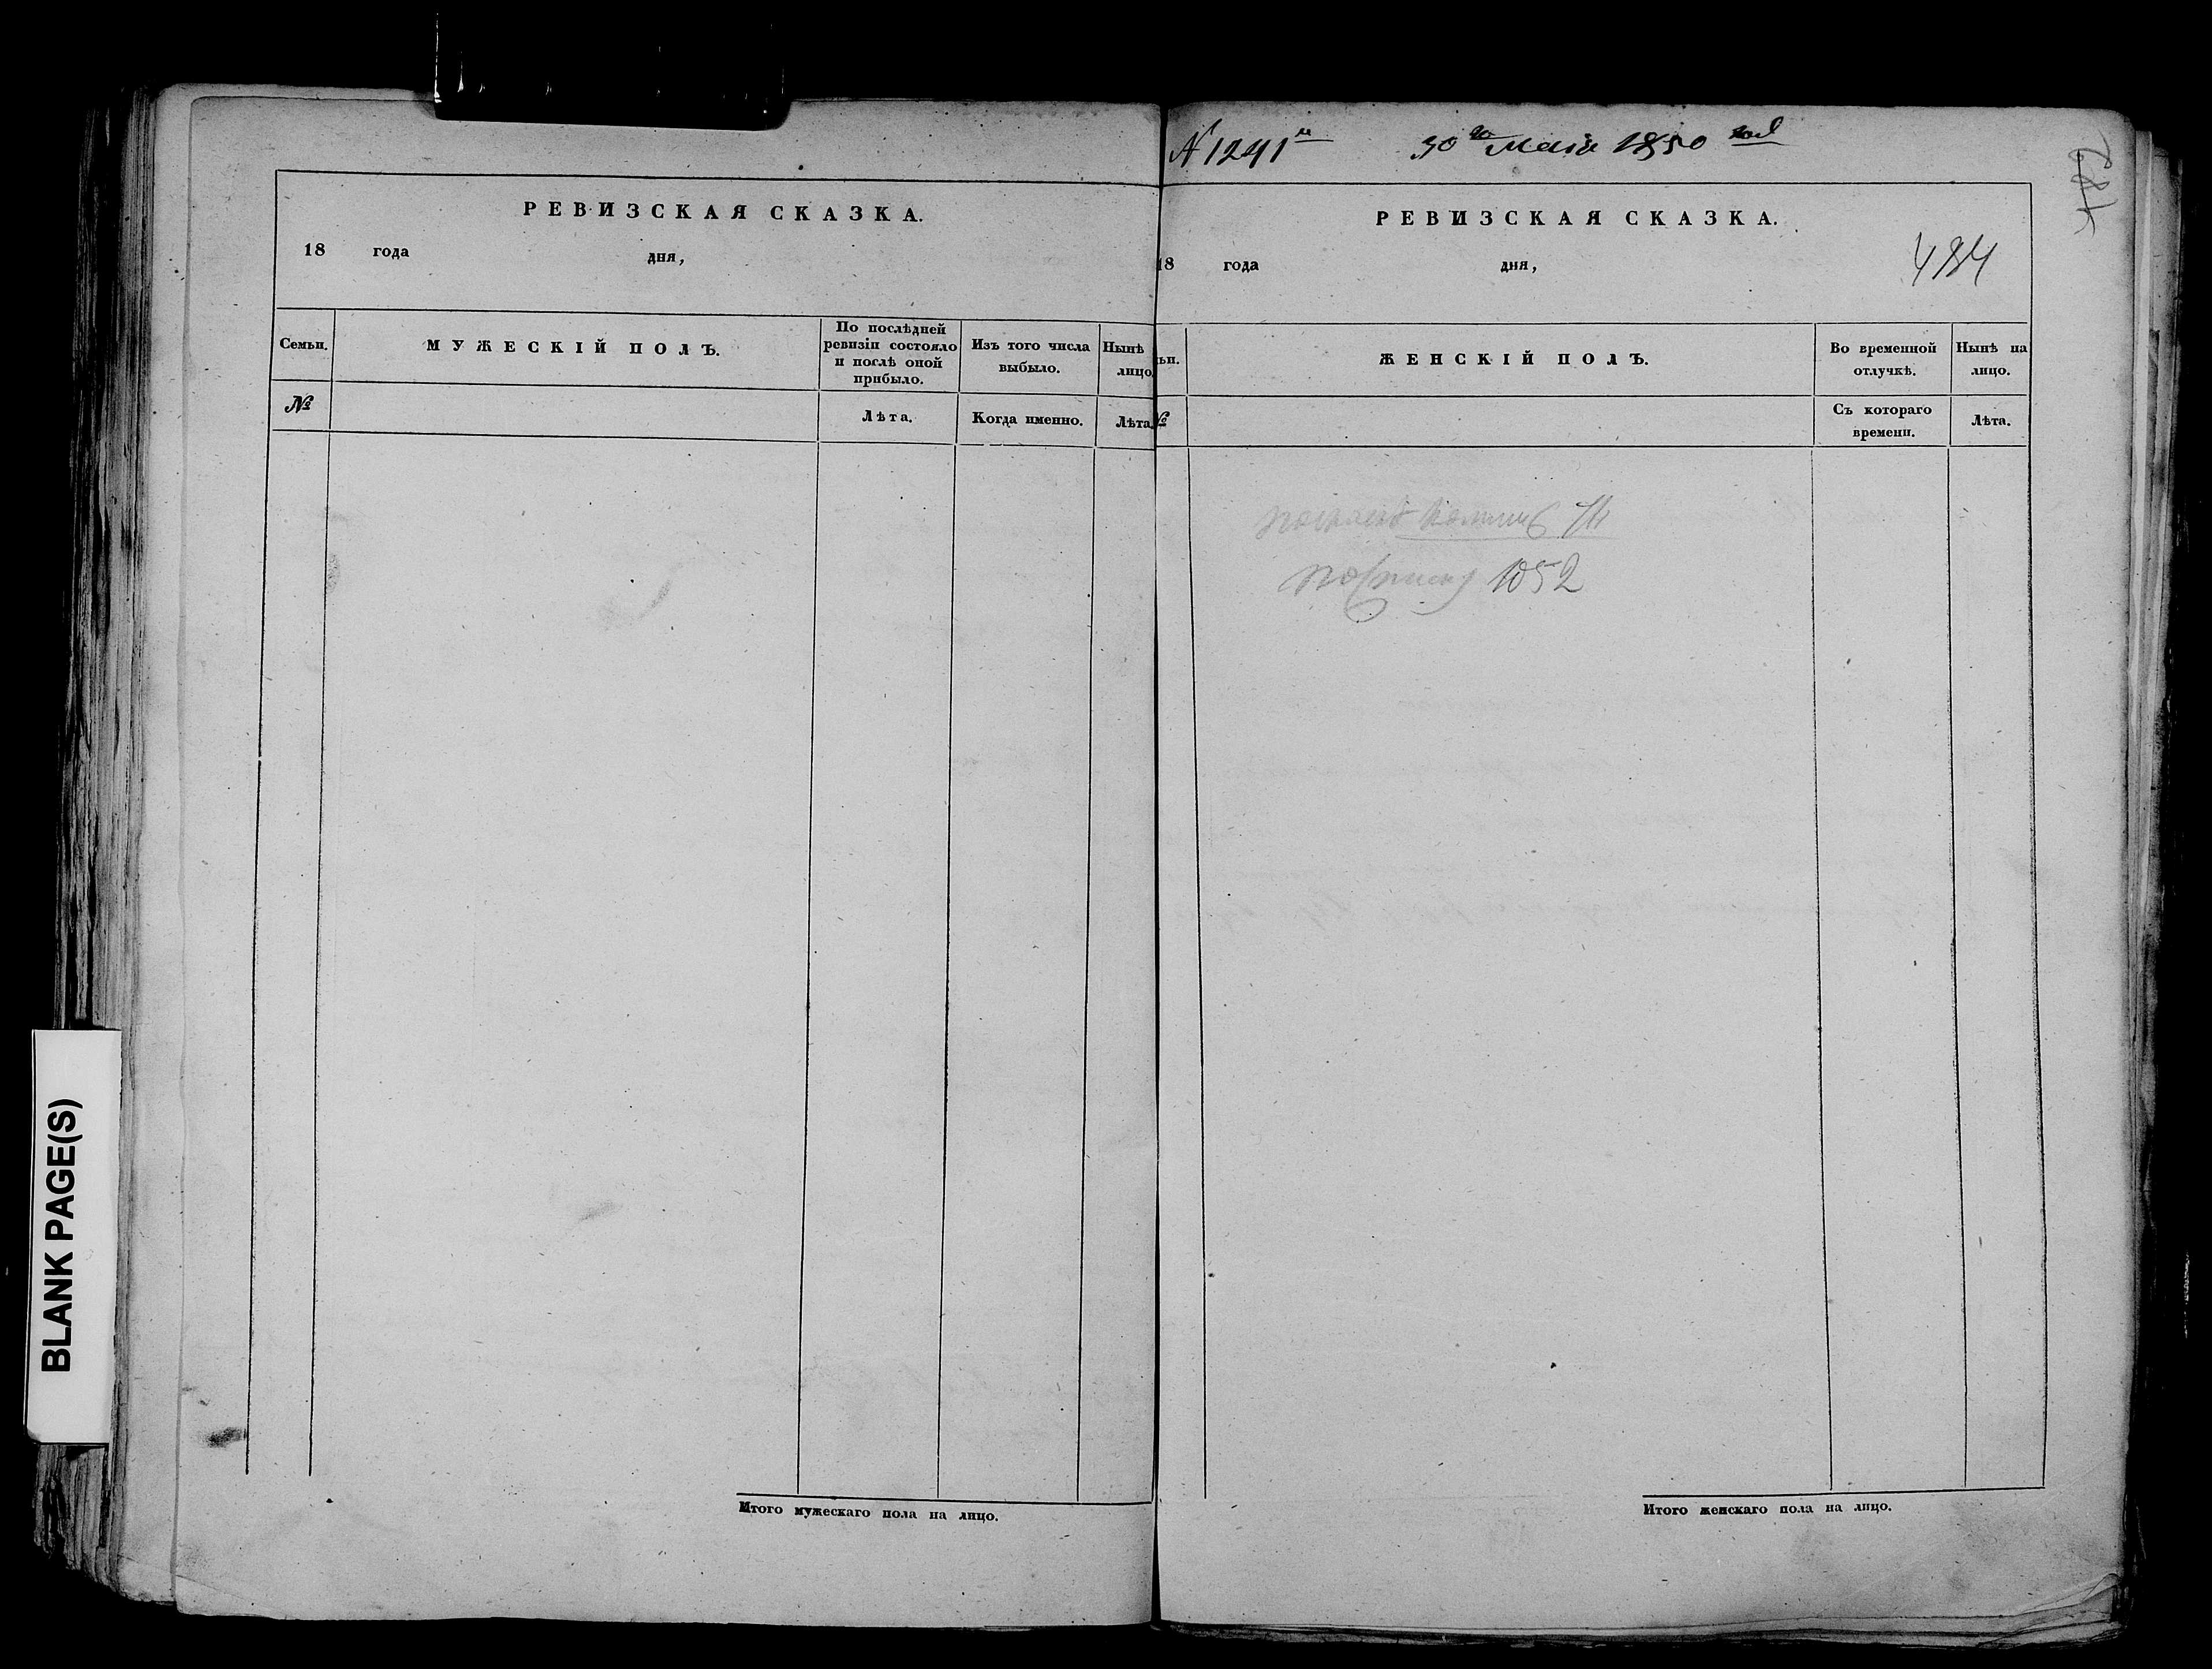 РЕВИЗСКАЯ СКАЗКА.
18 года дня,
Семьи.
МУЖЕСКІЙ ПОЛЪ.
По послѣдней ревизіи состояло и послѣ оной прибыло.
Изъ того числа выбыло.
Нынѣ лицо.
№
Лѣта.
Когда именно.
Лѣта.
Итого мужескаго пола на лицо.
№ 1241й
30го Маія 1850 года
482
РЕВИЗСКАЯ СКАЗКА.
18 года дня,
484
ьи.
ЖЕНСКІЙ ПОЛЪ.
Во временной отлучкѣ.
Нынѣ на лицо.
№
Съ котораго времени.
Лѣта.
1052
Итого женскаго пола на лицо.
BLANK PAGE(S)